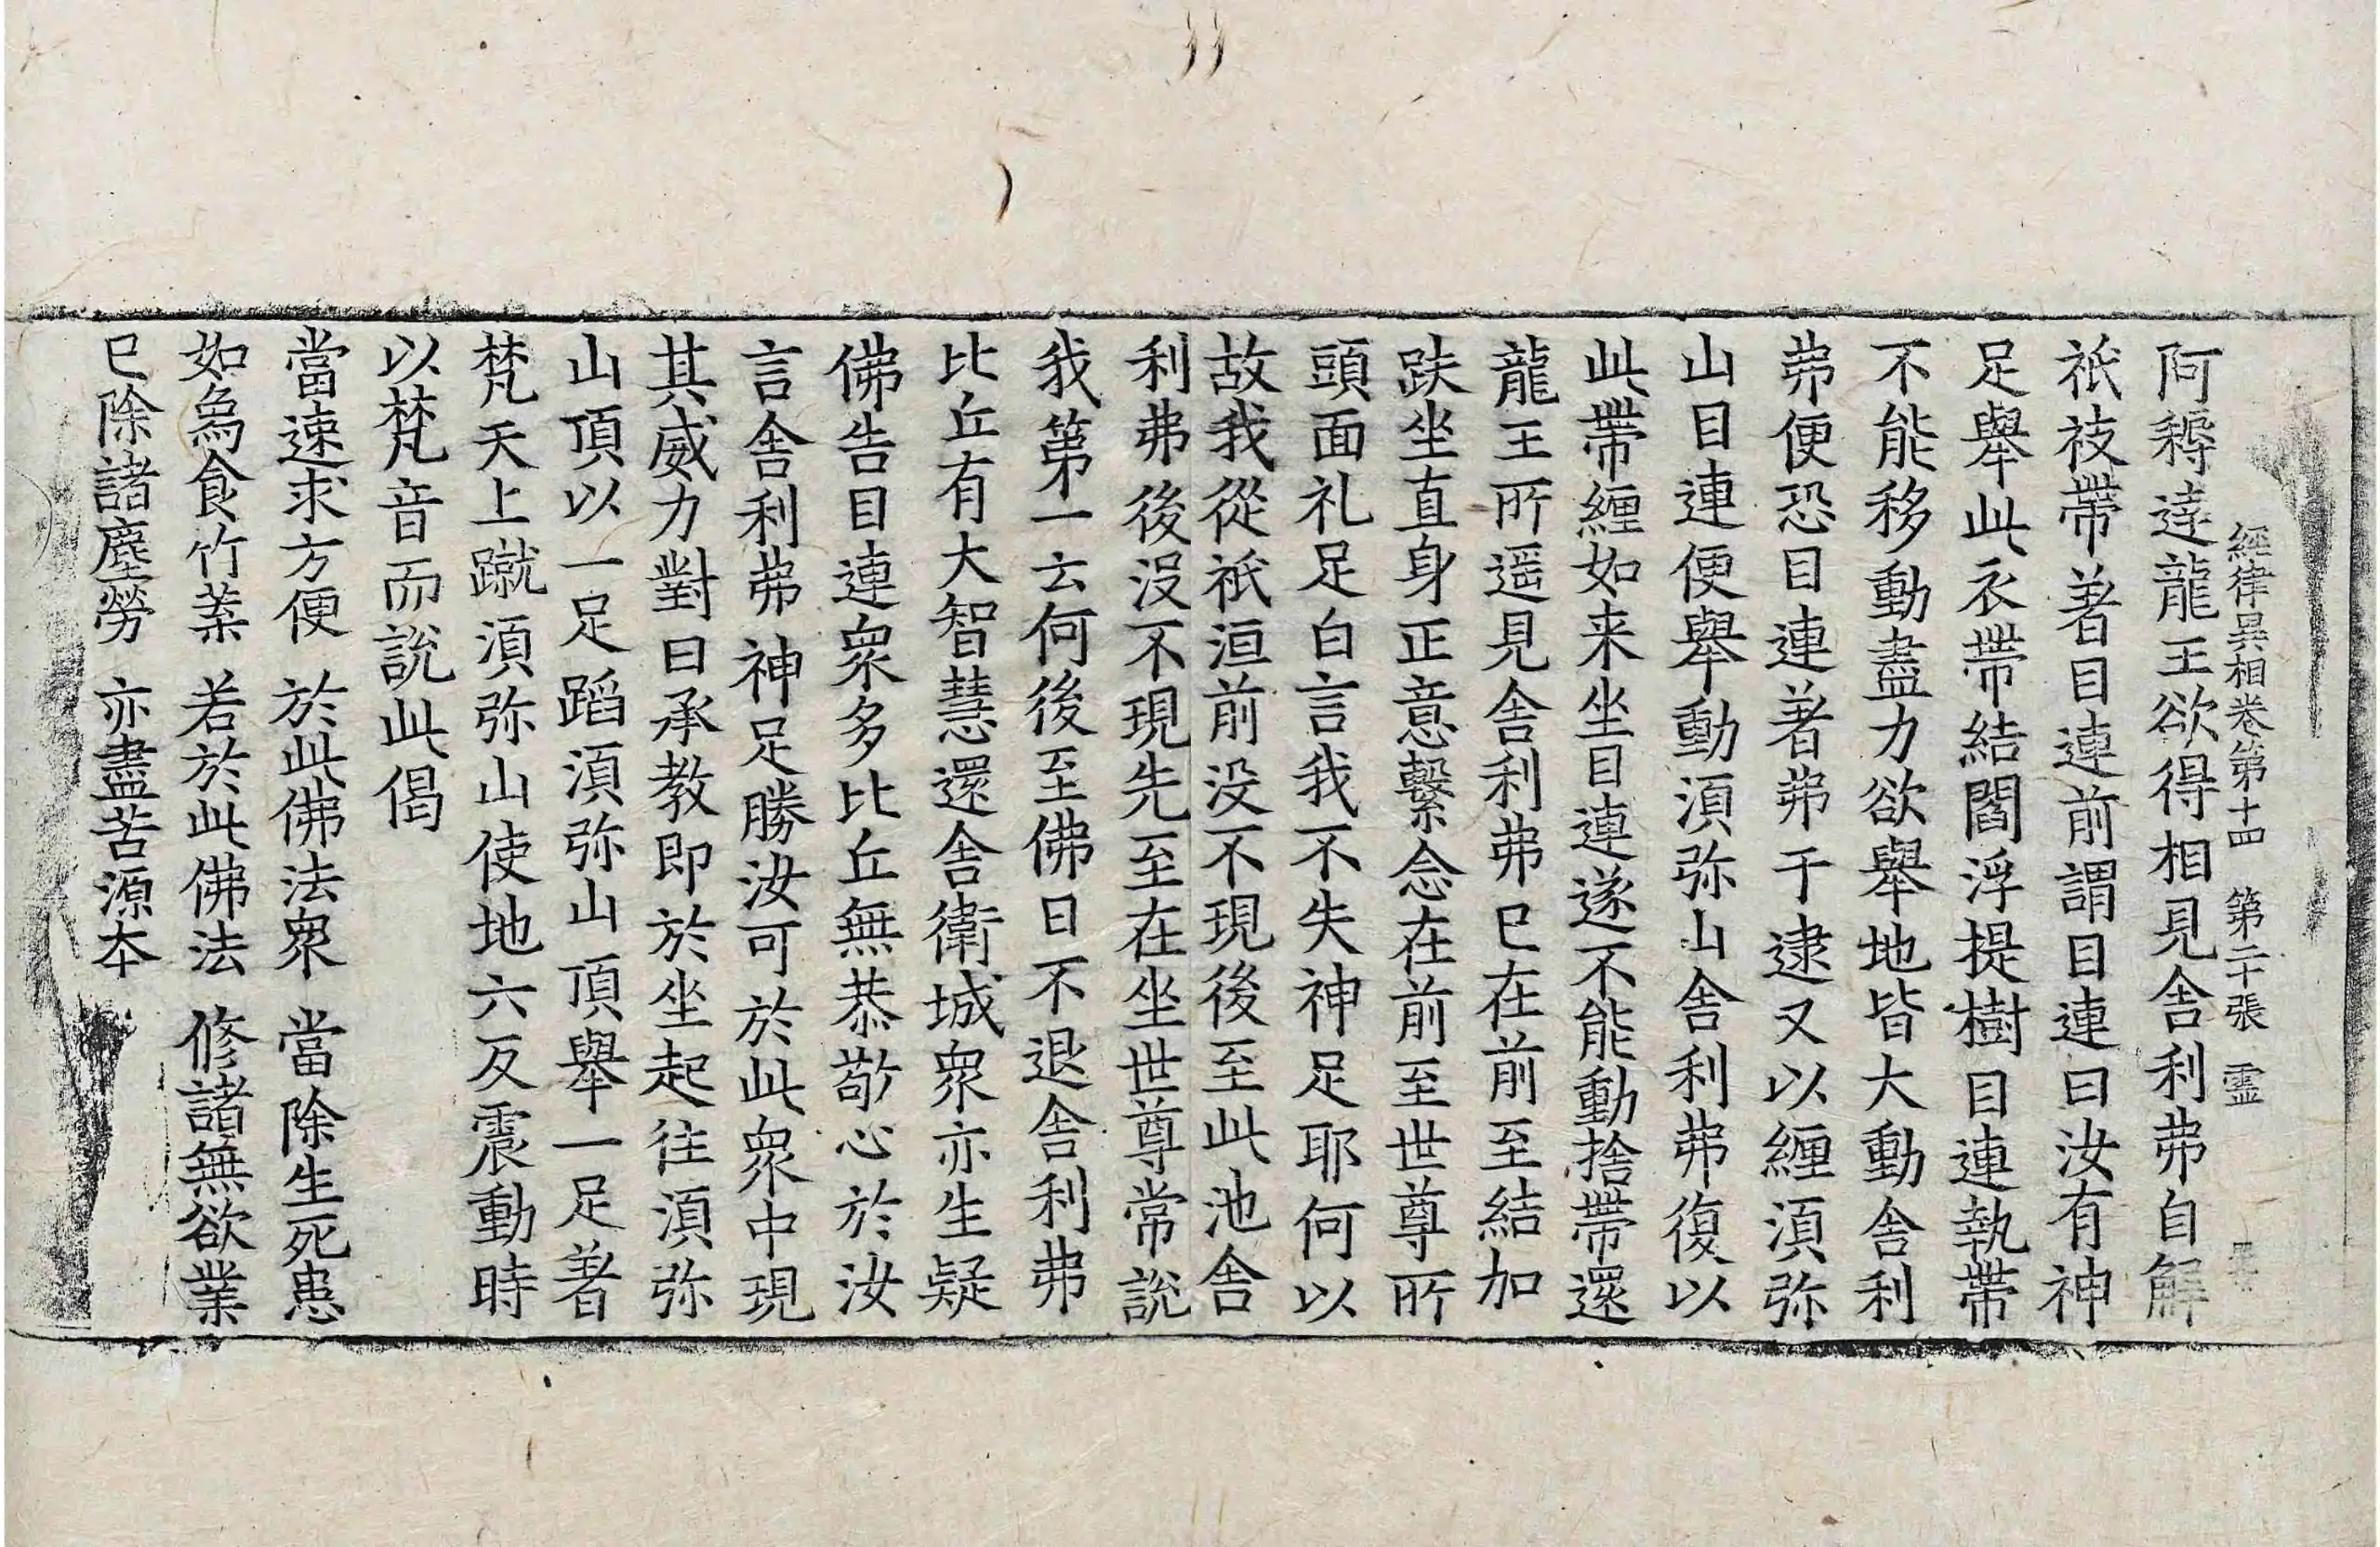 經律異相卷第十四 第二十張 靈
阿耨達龍王欲得相見舍利弗自解
祇祑帶著目連前謂目連曰汝有神
足舉此衣帶結閻浮提樹目連執帶
不能移動盡力欲舉地皆大動舍利
弗便恐目連著弗于逮又以纏湏弥
山目連便舉動湏弥山舍利弗復以
此帶纏如来坐目連遂不能動捨帶還
龍王所遥見舍利弗已在前至結加
趺坐直身正意繫念在前至世尊所
頭面礼足白言我不失神足耶何以
故我從祇洹前没不現後至此池舍
利弗後没不現先至在坐世尊常說
我第一云何後至佛曰不退舍利弗
比丘有大智慧還舍衛城衆亦生疑
佛告目連衆多比丘無恭敬心於汝
言舍利弗神足勝汝可於此衆中現
其威力對曰承教即於坐起往湏弥
山頂以一足蹈湏弥山頂舉一足著
梵天上蹴湏弥山使地六反震動時
以梵音而說此偈
當速求方便 於此佛法衆 當除生死患
如為食竹葉 若於此佛法 修諸無欲業
已除諸塵勞 亦盡苦源本